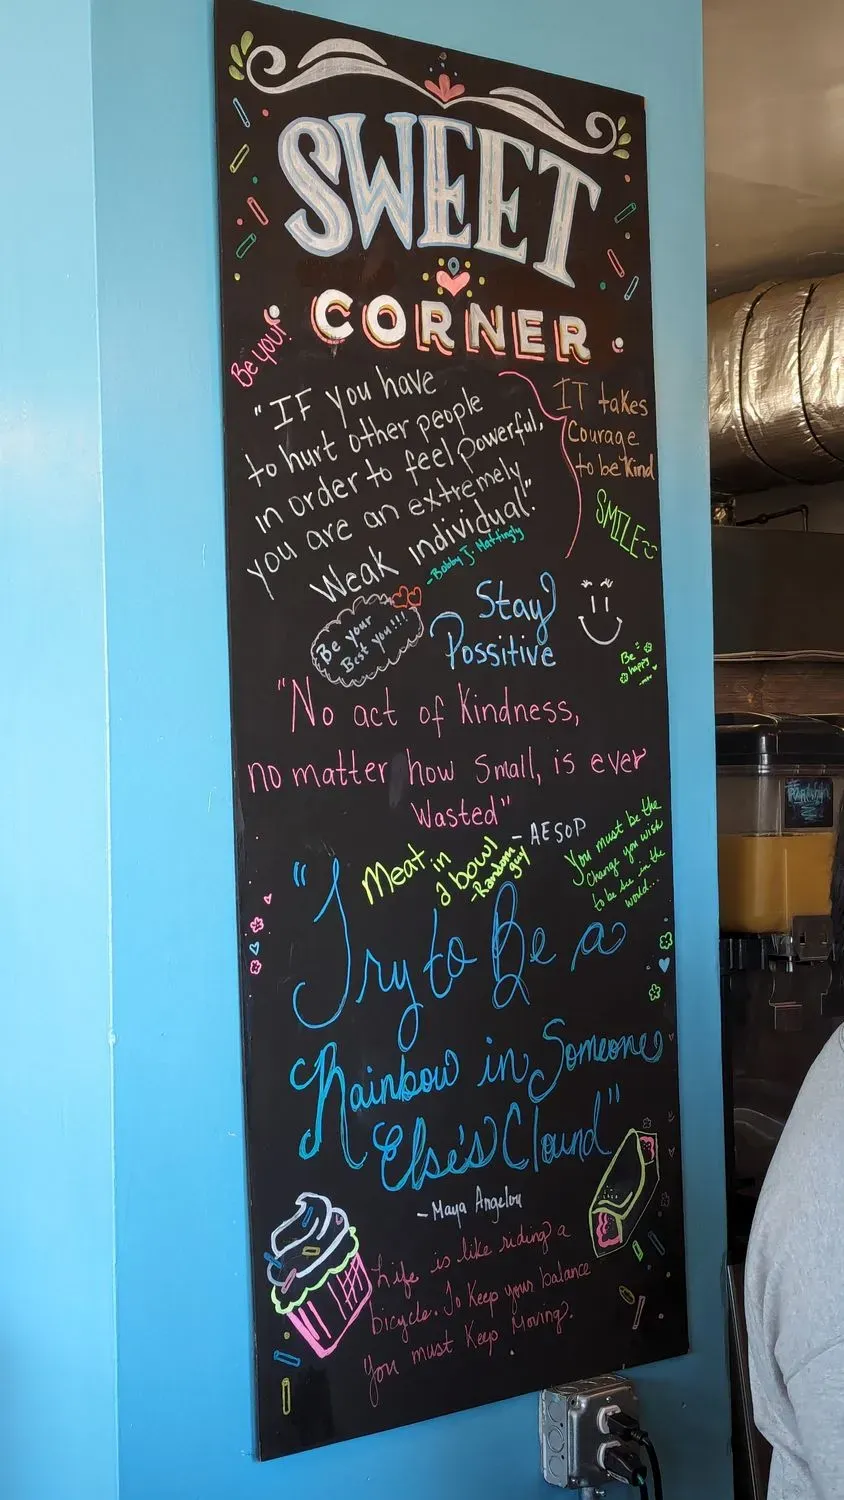 SWEET
CORNER
Be your
"IF you have
to hurt other people
in order to feel powerful,
you are an extremely
Weak individual."
-Bobby J. Mattingly
IT takes
Courage
to be kind
SMILE
Be your
Best you!!!
Stay
Possitive
Be
happy
"No act of Kindness,
no matter how small, is ever
Wasted"
-AESOP
Meat in
a bowl
-Random
guy
You must be the
Change you wish
to be in the
would...
"Try to Be a
Rainbow in Someone
Else's Clound"
-Maya Angelou
Life is like riding a
bicycle. To Keep your balance
you must Keep Moving.